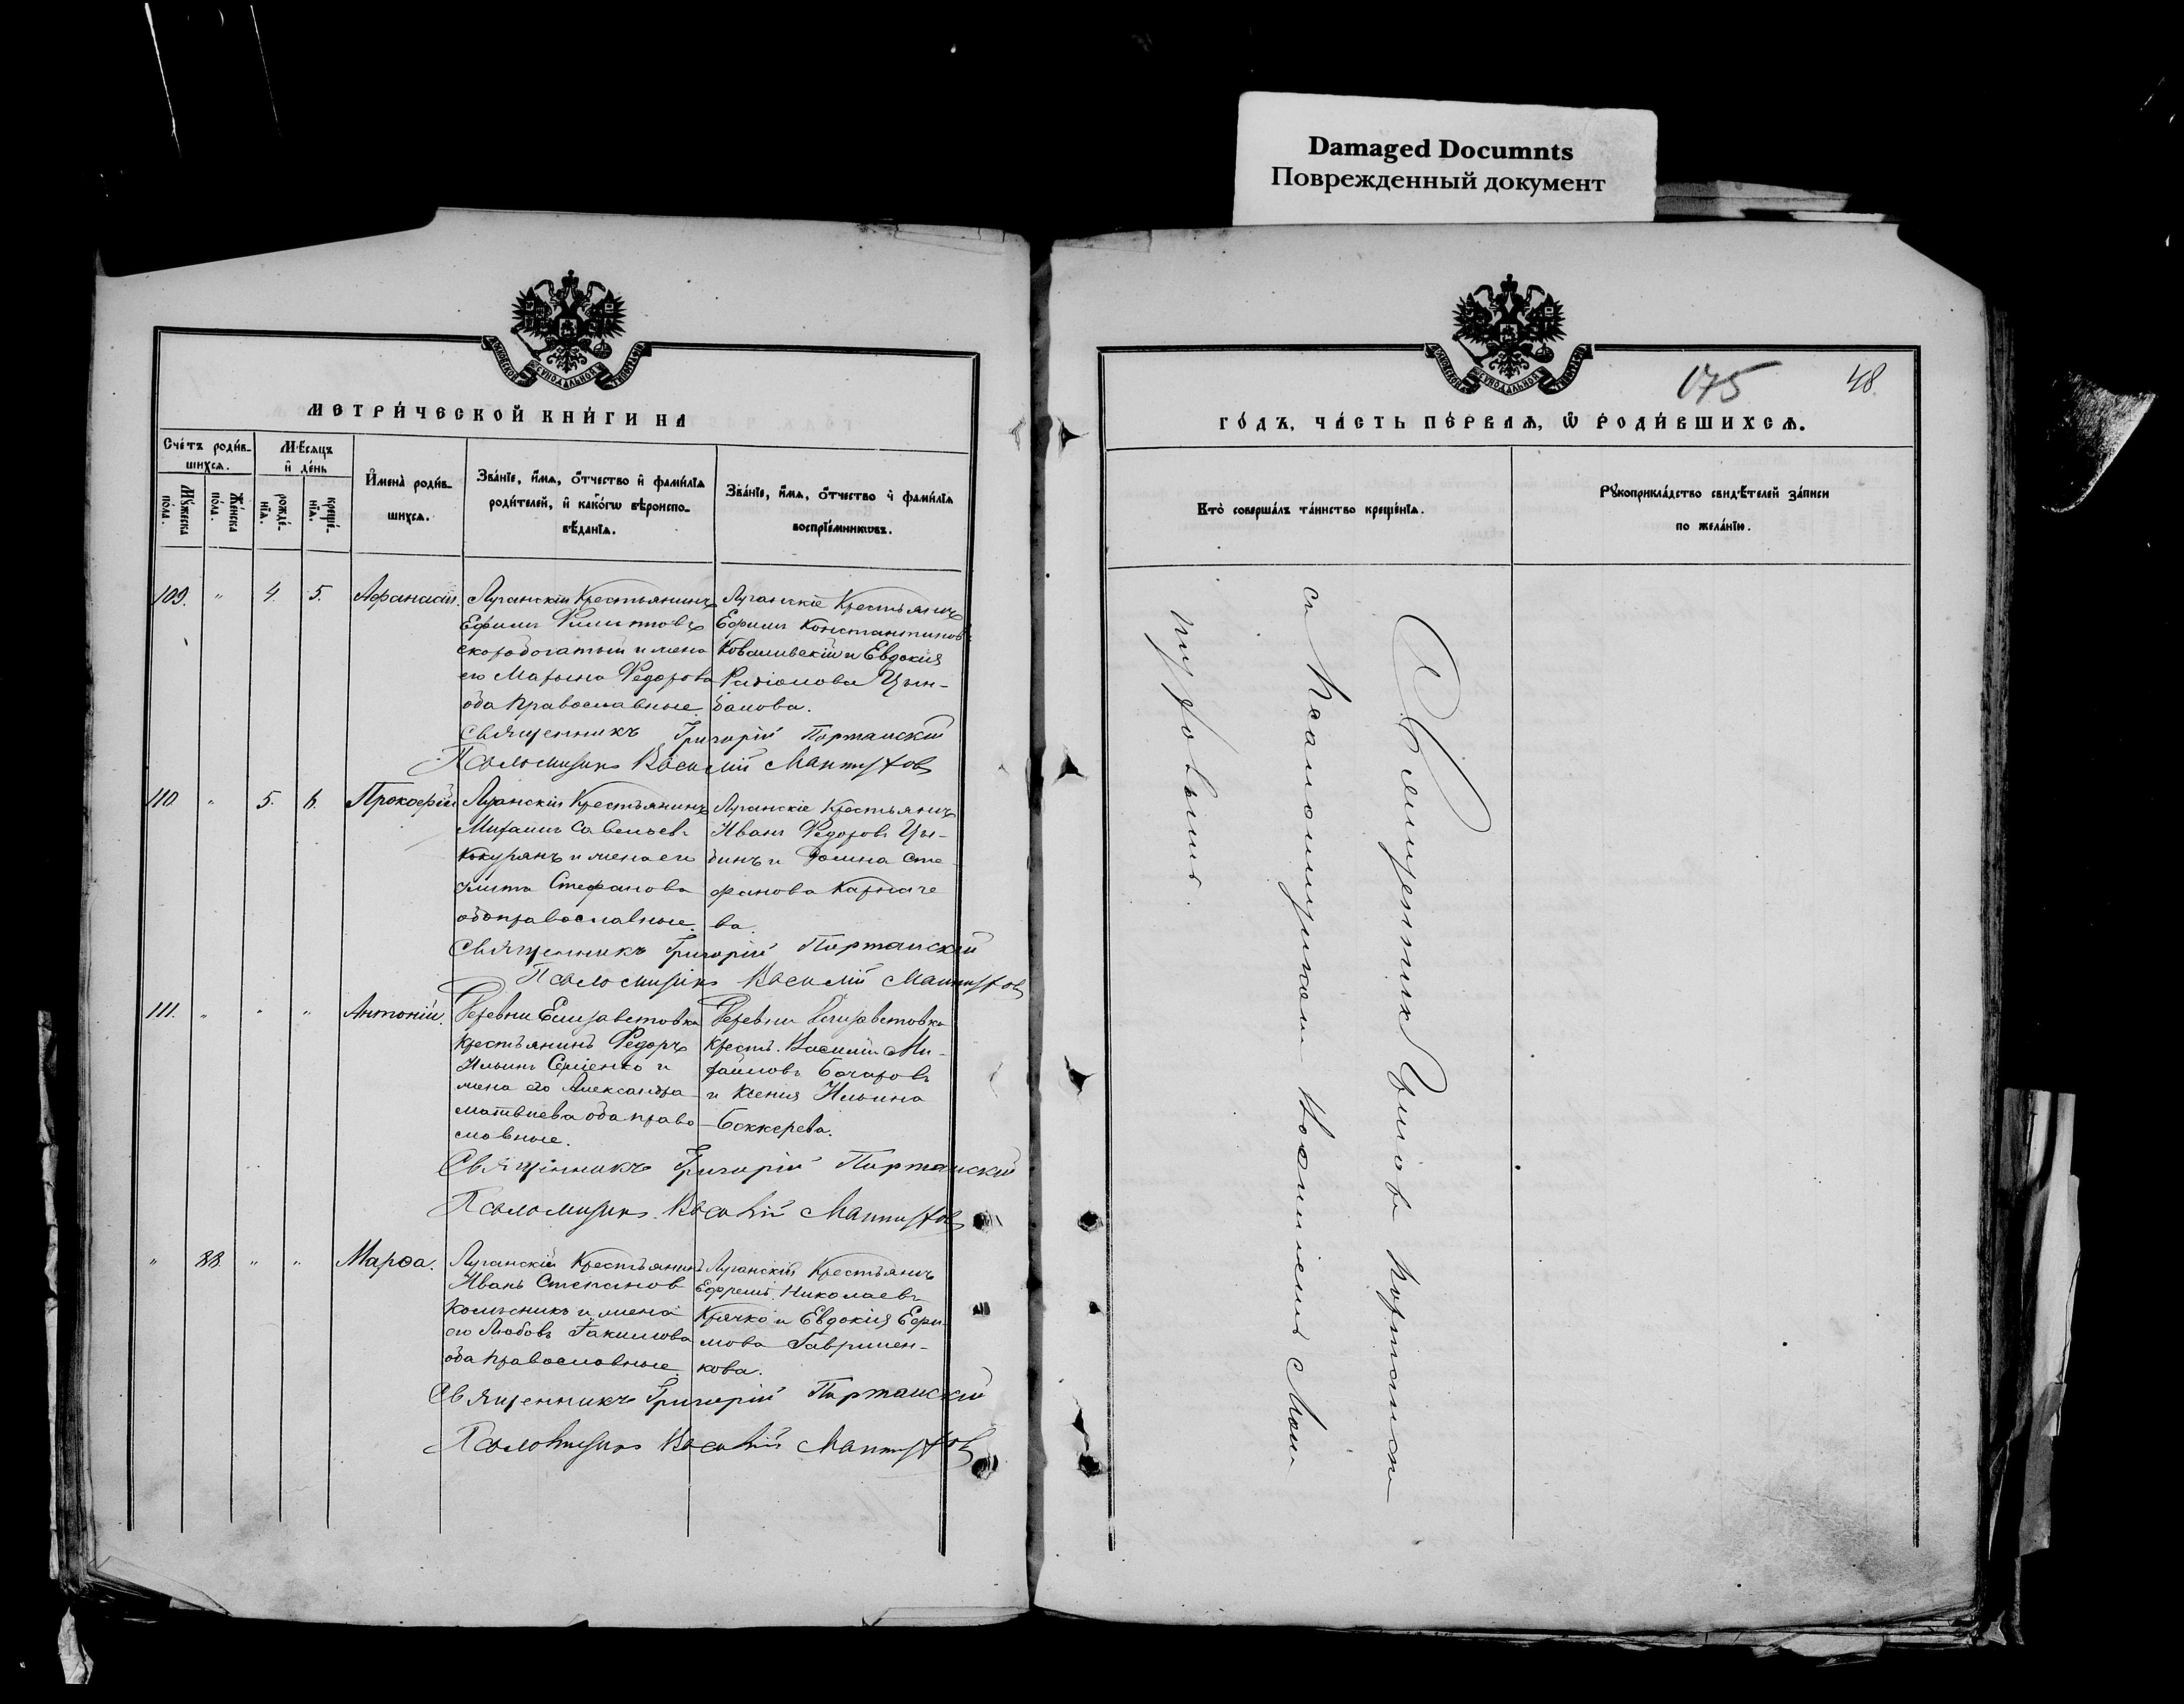 Damaged Documnts
Поврежденный документ
МЕТРИ́ЧЕСКОЙ КНИ́ГИ НА
Сче́тъ роди́в-
шихсѧ.
Мѣ́сѧцъ
и҆ де́нь
Мꙋ́жеска
по́ла.
Же́нска
по́ла.
рожде́-
нїѧ.
креще́-
нїѧ.
И҆мена̀ роди́в-
шихсѧ.
Зва́нїе, и҆́мѧ, ѻ҆́тчество и҆ фами́лїѧ
роди́телей, и҆ како́гѡ вѣроиспо-
вѣ́данїѧ.
Зва́нїе, и҆́мѧ, ѻ҆́тчество и҆ фами́лїѧ
воспрїе́мникѡвъ.
109. " 4. 5. Афанасій.
Луганскій Крестьянинъ
Ефимъ Филиповъ
Скоробогатый и жена
его Марьина Федорова
оба православные.
Луганскіе Крестьянинъ
Ефимъ Константиновъ
Ковалевскій и Евдокія
Родіонова Цым-
балова.
Священникъ Григорій Портанскій
Псаломщикъ Василій
110. " 5. 6. Прокофій
Луганскій Крестьянинъ
Михаилъ Савельевъ
Кокурянъ и жена его
Стефанова
оба православные.
Луганскіе Крестьянинъ
Иванъ Федоровъ Цы-
бинъ и Фомина Сте
фанова Карпаче
ва.
Священникъ Григорій Портанскій
Псаломщикъ Василій
111. " " " Антоній.
Деревни Елизаветовка
Крестьянинъ Федоръ
Ильинъ Сергіенко и
жена его Александра
Матвѣева оба право
славные.
Деревни Елизаветовка
Крест. Василій Ми-
хайловъ Бочаровъ
и Ксенія Ильина
Беккерева.
Священникъ Григорій Портанскій
Псаломщикъ Василій
" 88. " " Марѳа.
Луганскій Крестьянинъ
Иванъ Степановъ
Колѣсникъ и жена
его Любовь Іакимова
оба православные.
Луганскій Крестьянинъ
Ефремъ Николаевъ
Крячко и Евдокія Ефи-
мова Гавришен-
кова.
Священникъ Григорій Портанскій
Псаломщикъ Василій
175
48.
ГО́ДЪ, ЧА́СТЬ ПЕ́РВАѦ, Ѽ РОДИ́ВШИХСѦ.
Кто̀ соверша́лъ та́инство креще́нїѧ.
Рꙋкоприкла́дство свидѣ́телей за́писи
по жела́нїю.
Священникъ Григорій Портанскій
съ Псаломщикомъ Василіемъ